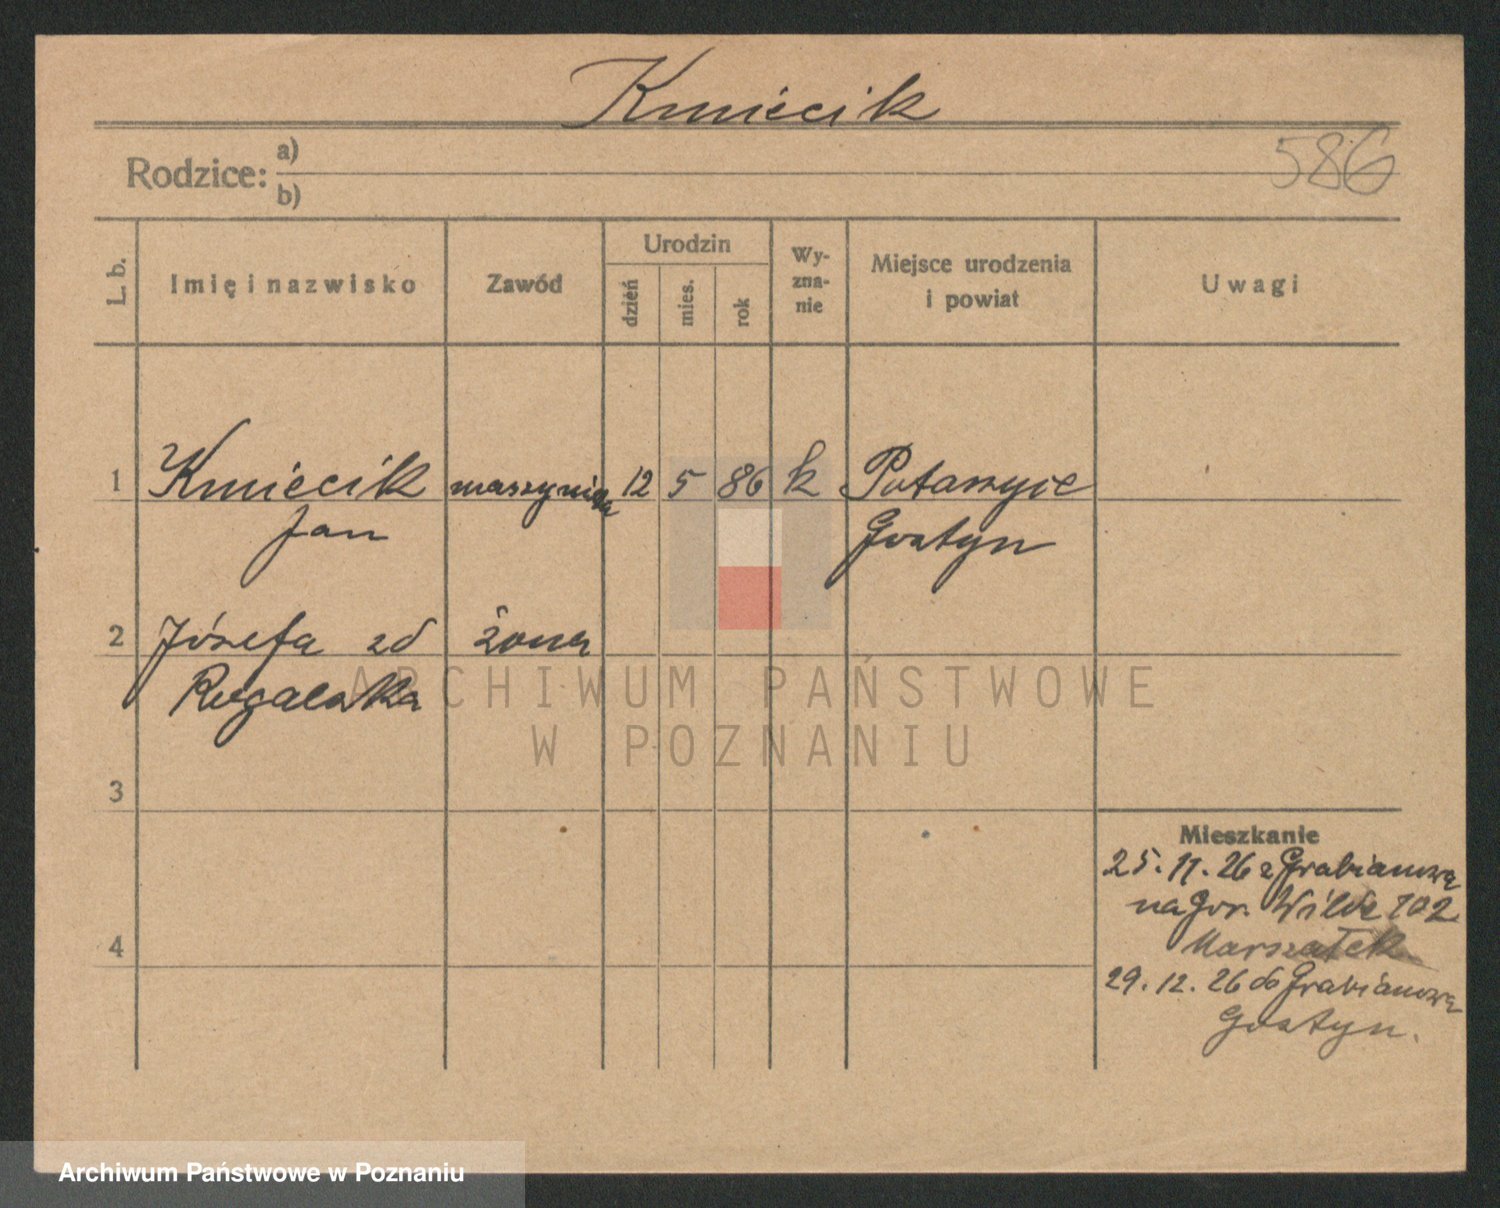 Kmiecik
586
Rodzice: a)
b)
L. b.
Imię i nazwisko
Zawód
Urodzin
dzień
mies.
rok
Wy-
zna-
nie
Miejsce urodzenia
i powiat
Uwagi
1 Kmiecik maszynista 12 5 86 k Potarzyce
Jan Gostyn
2 Józefa zd żona
Rogalska
3
4
Mieszkanie
25.11.26 z Grabianowa
na Gór. Wilde 102
Marszałek
29.12.26 do Grabianowa
Gostyn.
ARCHIWUM PAŃSTWOWE
W POZNANIU
Archiwum Państwowe w Poznaniu